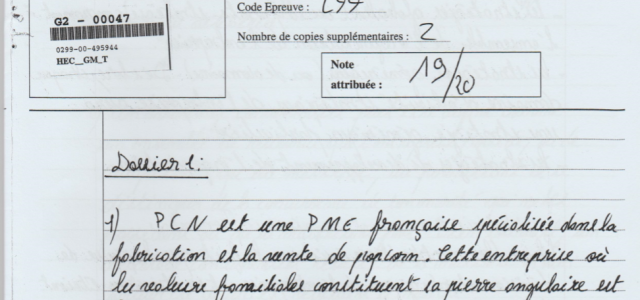 G2 - 00047
0299-00-495944
HEC__GM_T
Code Epreuve :
Nombre de copies supplémentaires : 2
Note
attribuée :
19/20
Dossier 1:
1) PCN est une PME française spécialisée dans la
fabrication et la vente de popcorn. Cette entreprise où
les valeurs familiales constituent sa pierre angulaire est